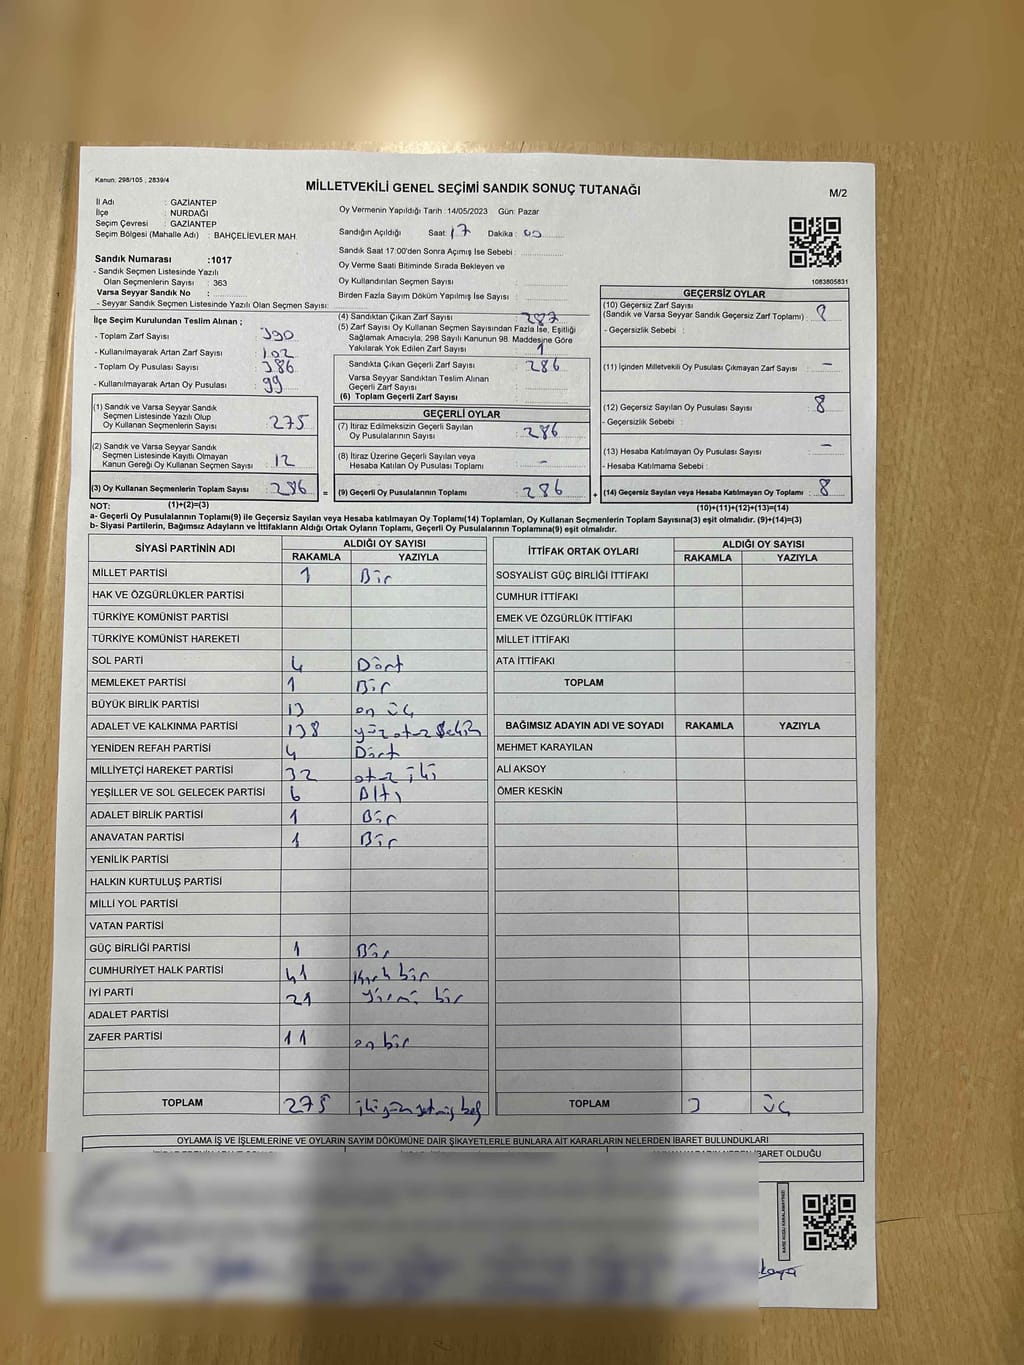 Kanun; 298/105 , 2839/4
MİLLETVEKİLİ GENEL SEÇİMİ SANDIK SONUÇ TUTANAĞI
M/2
İl Adı : GAZİANTEP
İlçe : NURDAĞI
Seçim Çevresi : GAZİANTEP
Seçim Bölgesi (Mahalle Adı) : BAHÇELİEVLER MAH.
Sandık Numarası :1017
- Sandık Seçmen Listesinde Yazılı
Olan Seçmenlerin Sayısı : 363
Varsa Seyyar Sandık No :
- Seyyar Sandık Seçmen Listesinde Yazılı Olan Seçmen Sayısı:
Oy Vermenin Yapıldığı Tarih :14/05/2023 Gün: Pazar
Sandığın Açıldığı Saat: 17 Dakika: 00
Sandık Saat 17:00'den Sonra Açımış İse Sebebi :
Oy Verme Saati Bitiminde Sırada Bekleyen ve
Oy Kullandırılan Seçmen Sayısı :
Birden Fazla Sayım Döküm Yapılmış İse Sayısı :
1083805831
İlçe Seçim Kurulundan Teslim Alınan ;
- Toplam Zarf Sayısı : 390
- Kullanılmayarak Artan Zarf Sayısı : 102
- Toplam Oy Pusulası Sayısı : 386
- Kullanılmayarak Artan Oy Pusulası : 99
(1) Sandık ve Varsa Seyyar Sandık
Seçmen Listesinde Yazılı Olup
Oy Kullanan Seçmenlerin Sayısı : 275
(2) Sandık ve Varsa Seyyar Sandık
Seçmen Listesinde Kayıtlı Olmayan
Kanun Gereği Oy Kullanan Seçmen Sayısı : 12
(3) Oy Kullanan Seçmenlerin Toplam Sayısı : 286
(1)+(2)=(3)
(4) Sandıktan Çıkan Zarf Sayısı : 287
(5) Zarf Sayısı Oy Kullanan Seçmen Sayısından Fazla İse, Eşitliği
Sağlamak Amacıyla; 298 Sayılı Kanunun 98. Maddesine Göre
Yakılarak Yok Edilen Zarf Sayısı : 1
Sandıkta Çıkan Geçerli Zarf Sayısı : 286
Varsa Seyyar Sandıktan Teslim Alınan
Geçerli Zarf Sayısı :
(6) Toplam Geçerli Zarf Sayısı :
GEÇERLİ OYLAR
(7) İtiraz Edilmeksizin Geçerli Sayılan
Oy Pusulalarının Sayısı : 286
(8) İtiraz Üzerine Geçerli Sayılan veya
Hesaba Katılan Oy Pusulası Toplamı : -
= (9) Geçerli Oy Pusulalarının Toplamı : 286 +
GEÇERSİZ OYLAR
(10) Geçersiz Zarf Sayısı
(Sandık ve Varsa Seyyar Sandık Geçersiz Zarf Toplamı) :
- Geçersizlik Sebebi :
(11) İçinden Milletvekili Oy Pusulası Çıkmayan Zarf Sayısı : -
(12) Geçersiz Sayılan Oy Pusulası Sayısı : 8
- Geçersizlik Sebebi :
(13) Hesaba Katılmayan Oy Pusulası Sayısı : -
- Hesaba Katılmama Sebebi :
(14) Geçersiz Sayılan veya Hesaba Katılmayan Oy Toplamı : 8
(10)+(11)+(12)+(13)=(14)
NOT:
a- Geçerli Oy Pusulalarının Toplamı(9) ile Geçersiz Sayılan veya Hesaba katılmayan Oy Toplamı(14) Toplamları, Oy Kullanan Seçmenlerin Toplam Sayısına(3) eşit olmalıdır. (9)+(14)=(3)
b- Siyasi Partilerin, Bağımsız Adayların ve İttifakların Aldığı Ortak Oyların Toplamı, Geçerli Oy Pusulalarının Toplamına(9) eşit olmalıdır.
SİYASİ PARTİNİN ADI ALDIĞI OY SAYISI
RAKAMLA YAZIYLA
MİLLET PARTİSİ 1 Bir
HAK VE ÖZGÜRLÜKLER PARTİSİ
TÜRKİYE KOMÜNİST PARTİSİ
TÜRKİYE KOMÜNİST HAREKETİ
SOL PARTİ 4 Dört
MEMLEKET PARTİSİ 1 Bir
BÜYÜK BİRLİK PARTİSİ 13 on üç
ADALET VE KALKINMA PARTİSİ 138 yüz otuz sekiz
YENİDEN REFAH PARTİSİ 4 Dört
MİLLİYETÇİ HAREKET PARTİSİ 32 otuz iki
YEŞİLLER VE SOL GELECEK PARTİSİ 6 Altı
ADALET BİRLİK PARTİSİ 1 Bir
ANAVATAN PARTİSİ 1 Bir
YENİLİK PARTİSİ
HALKIN KURTULUŞ PARTİSİ
MİLLİ YOL PARTİSİ
VATAN PARTİSİ
GÜÇ BİRLİĞİ PARTİSİ 1 Bir
CUMHURİYET HALK PARTİSİ 41 Kırk bir
İYİ PARTİ 21 yirmi bir
ADALET PARTİSİ
ZAFER PARTİSİ 11 on bir
TOPLAM 275 iki yüz yetmiş beş
İTTİFAK ORTAK OYLARI ALDIĞI OY SAYISI
RAKAMLA YAZIYLA
SOSYALİST GÜÇ BİRLİĞİ İTTİFAKI
CUMHUR İTTİFAKI
EMEK VE ÖZGÜRLÜK İTTİFAKI
MİLLET İTTİFAKI
ATA İTTİFAKI
TOPLAM
BAĞIMSIZ ADAYIN ADI VE SOYADI RAKAMLA YAZIYLA
MEHMET KARAYILAN
ALİ AKSOY
ÖMER KESKİN
TOPLAM 3 üç
OYLAMA İŞ VE İŞLEMLERİNE VE OYLARIN SAYIM DÖKÜMÜNE DAİR ŞİKAYETLERLE BUNLARA AİT KARARLARIN NELERDEN İBARET BULUNDUKLARI
İBARET OLDUĞU